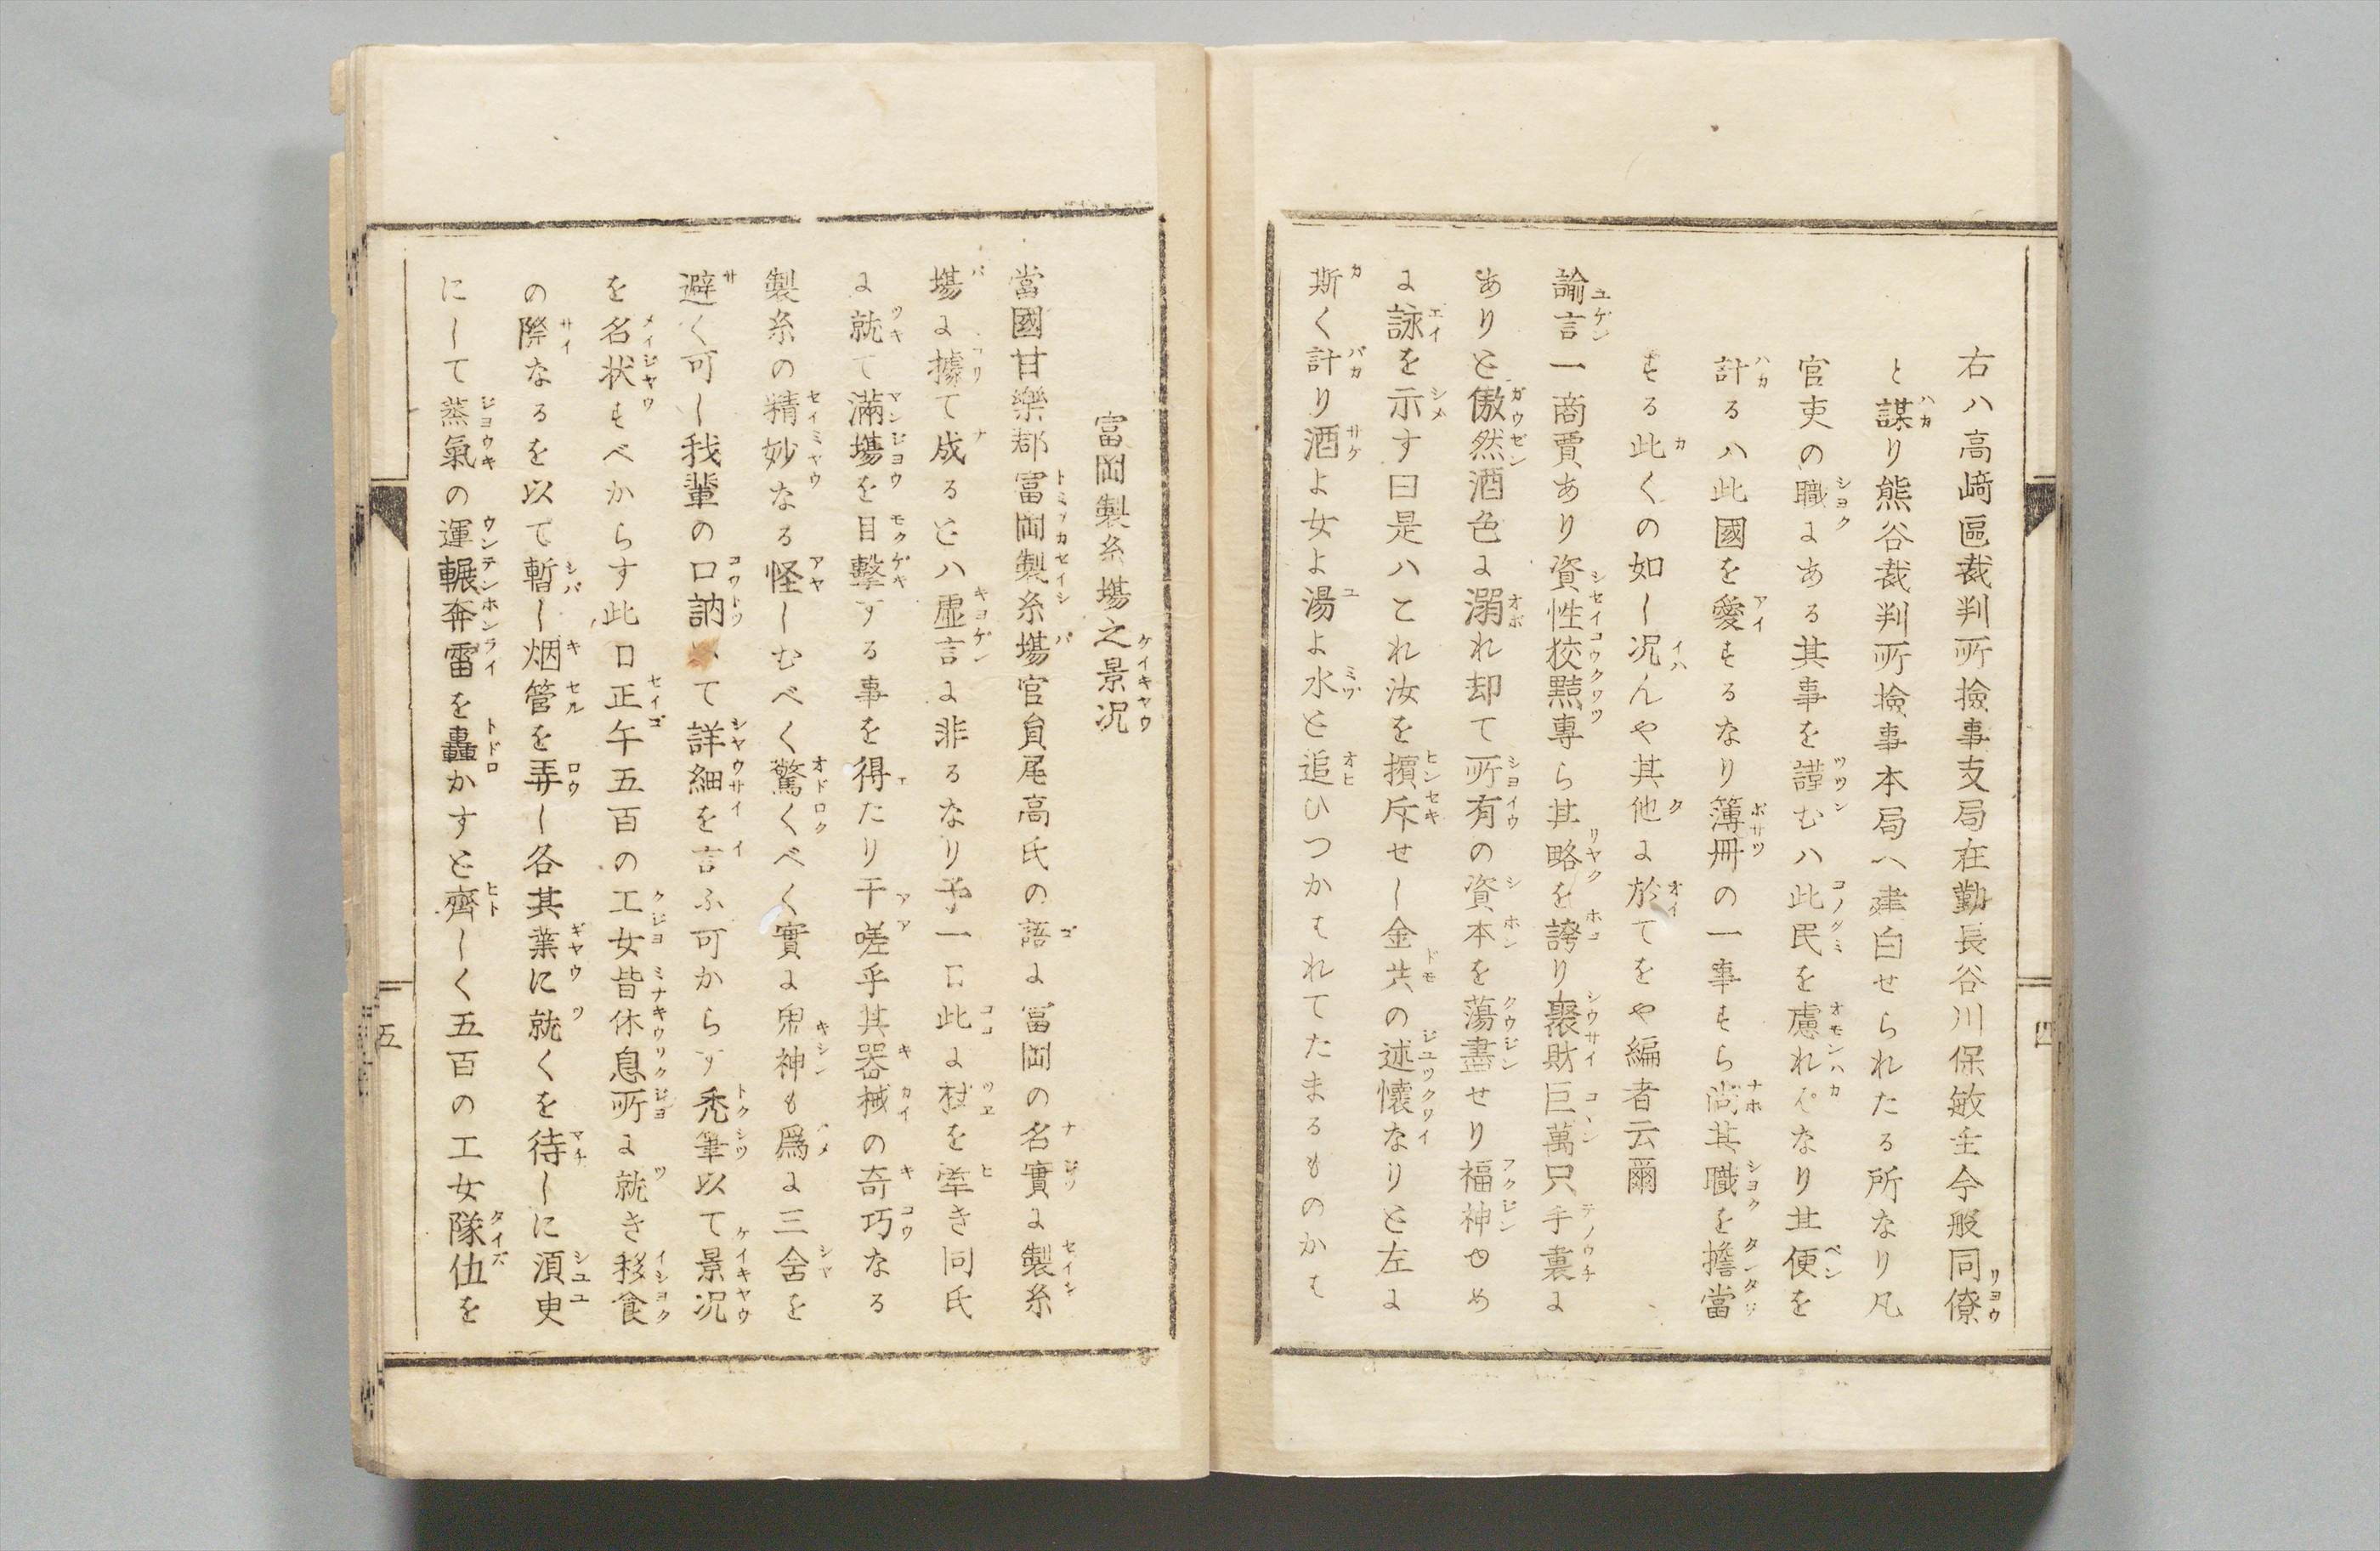 右ハ高﨑區裁判所撿事支局在勤長谷川保敏主今般同僚
と謀り熊谷裁判所撿事本局へ建白せられたる所なり凡
官吏の職にある其事を謹むハ此民を慮れバなり其便を
計るハ此國を愛するなり簿冊の一事すら尚其職を擔當
する此くの如し况んや其他に於てをや編者云爾
諭言一商賈あり資性狡黠専ら其略を誇り裒財巨萬只手裏に
ありと傲然酒色に溺れ却て所有の資本を蕩盡せり福神ゆめ
に詠を示す曰是ハこれ汝を擯斥せし金共の述懷なりと左に
斯く計り酒よ女よ湯よ水と追ひつかはれてたまるものかは
四
富岡製糸塲之景况
當國甘樂郡富岡製糸塲官員尾高氏の語に冨岡の名實に製糸
塲に據て成るとハ虚言に非るなり予一日此に杖を牽き同氏
に就て滿塲を目擊する事を得たり于嗟乎其器械の奇巧なる
製糸の精妙なる怪しむべく驚くべく實に鬼神も爲に三舍を
避く可し我輩の口訥いて詳細を言ふ可からす禿筆以て景况
を名状すべからす此日正午五百の工女皆休息所に就き移食
の際なるを以て暫し烟管を弄し各其業に就くを待しに湏臾
にして蒸氣の運輾奔雷を轟かすと齊しく五百の工女隊伍を
五